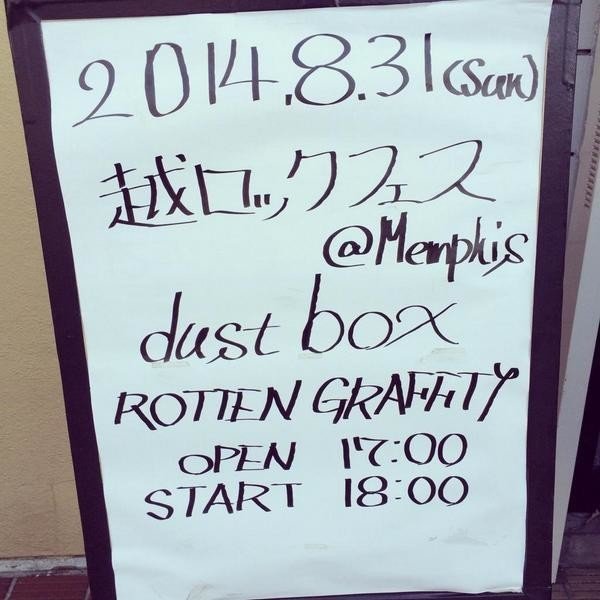 2014.8.31(Sun)
越ロックフェス
@Memphis
dustbox
ROTTEN GRAFFTY
OPEN 17:00
START 18:00